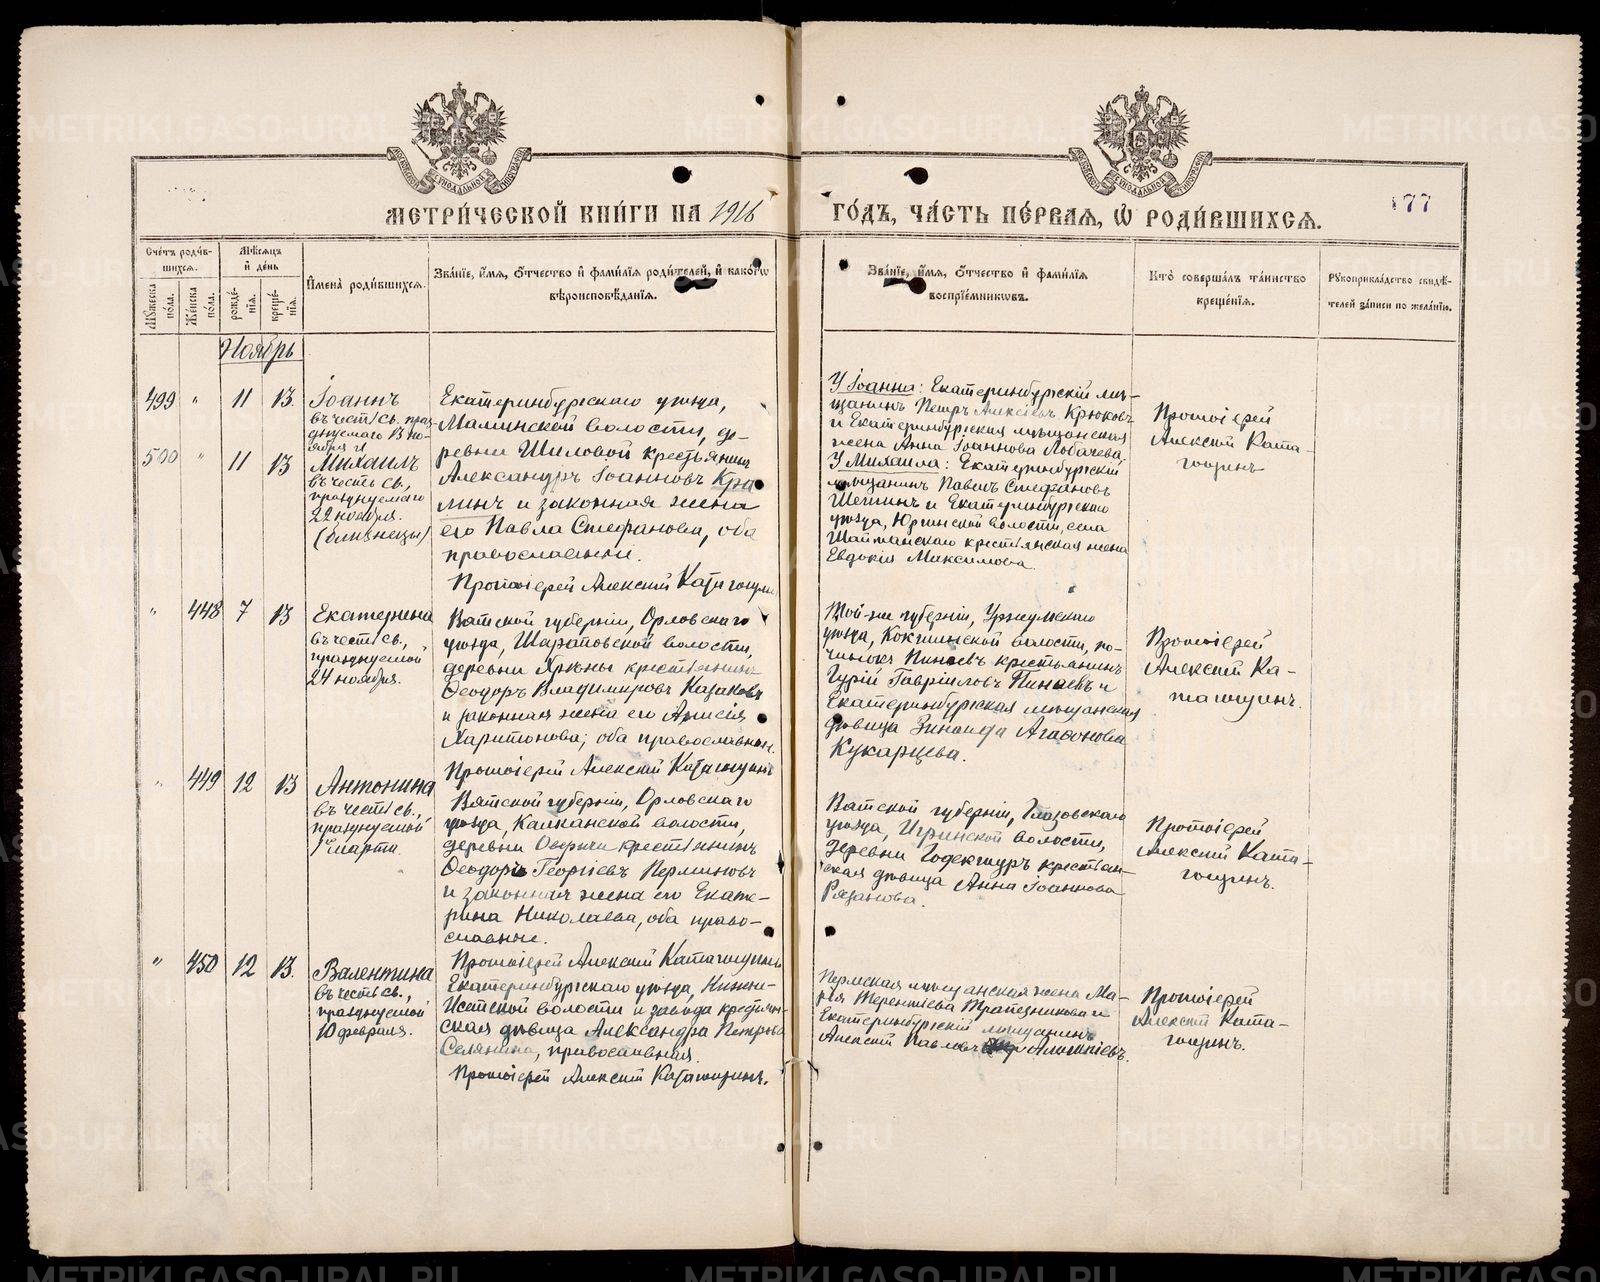 МЕТРИ́ЧЕСКОЙ КНИ́ГИ НА 1916
ГО́ДЪ, ЧА́СТЬ ПЕ́РВАЯ, Ѡ РОДИ́ВШИХСЯ.
177
Сче́тъ роди́в-
шихся.
Мѣ́сяцъ
и де́нь
Мꙋ́жеска по́ла.
Же́нска по́ла.
рожде́-
нїя.
креще́-
нїя.
Имена̀ роди́вшихся.
Зва́нїе, и́мя, о́тчество и фами́лїя роди́телей, и како́гѡ
вѣроисповѣ́данїя.
Зва́нїе, и́мя, о́тчество и фами́лїя
воспрїе́мникѡвъ.
Кто̀ соверша́лъ та́инство
креще́нїя.
Рꙋкоприкла́дство свидѣ́-
телей за́писи по жела́нїю.
Ноябрь
499 " 11 13.
Іоаннъ
въ честь св. праз-
днуемаго 13 но-
ября и
500 " 11 13
Михаилъ
въ честь св.,
празднуемаго
22 ноября.
(близнецы)
Екатеринбургскаго уѣзда,
Маминской волости, де-
ревни Шиловой крестьянинъ
Александръ Іоанновъ Кра-
линъ и законная жена
его Павла Стефанова, оба
православные.
Протоіерей Алексій Катагощинъ
У Іоанна: Екатеринбургскій мѣ-
щанинъ Петръ Алексіевъ Крюковъ
и Екатеринбургская мѣщанская
жена Анна Іоаннова Лобачева.
У Михаила: Екатеринбургскій
мѣщанинъ Павелъ Стефановъ
и Екатеринбургскаго
уѣзда, волости, села
крестьянская жена
Евдокія Максимова.
Протоіерей
Алексій Ката-
гощинъ
" 448 7 13
Екатерина
въ честь св.,
празднуемой
24 ноября.
Вятской губерніи, Орловскаго
уѣзда, Шараповской волости,
деревни крестьянинъ
Ѳеодоръ Владиміровъ Казаковъ
и законная жена его Анисія
Харитонова; оба православные.
Протоіерей Алексій Катагощинъ
Той-же губерніи, Уржумскаго
уѣзда, Кокшинской волости, по-
чинокъ Пинаевъ крестьянинъ
Гурій Гавріиловъ Пинаевъ и
Екатеринбургская мѣщанская
дѣвица Зинаида Агаѳонова
Кукарцева.
Протоіерей
Алексій Ка-
тагощинъ.
" 449 12 13
Антонина
въ честь св.,
празднуемой
1 марта.
Вятской губерніи, Орловскаго
уѣзда, волости,
деревни крестьянинъ
Ѳеодоръ Георгіевъ Перминовъ
и законная жена его Екате-
рина Николаева, оба право-
славные.
Протоіерей Алексій Катагощинъ
Вятской губерніи, Глазовскаго
уѣзда, Игринской волости,
деревни крестьян-
ская дѣвица Анна Іоаннова
Рязанова.
Протоіерей
Алексій Ката-
гощинъ.
" 450 12 13.
Валентина
въ честь св.,
празднуемой
10 февраля.
Екатеринбургскаго уѣзда, Нижне-
Исетской волости и завода крестьян-
ская дѣвица Александра Петрова
Селянина, православная.
Протоіерей Алексій Катагощинъ.
Пермская мѣщанская жена Ма-
рія Терентіева Трапезникова и
Екатеринбургскій мѣщанинъ
Алексій Павловъ
Протоіерей
Алексій Ката-
гощинъ.
METRIKI.GASO-URAL.RU